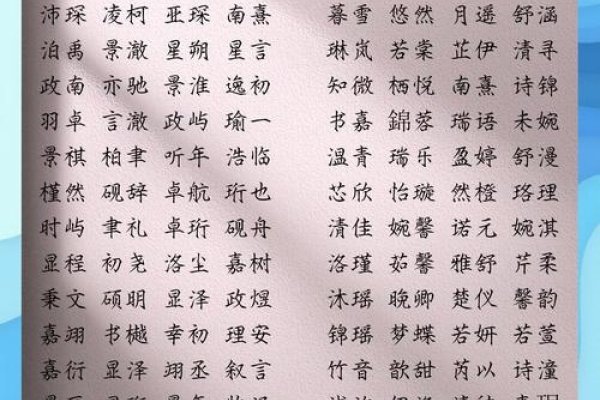 沛琛 凌柯 亚琛 南熹 暮雪 悠然 月遥 舒涵
泊禹 景澈 星朔 星言 琳岚 若棠 芷伊 清寻
政南 亦驰 景淮 逸初 知微 栖悦 南熹 诗锦
羽卓 言澈 政屿 瑜一 书嘉 錦蓉 瑞语 未婉
景祺 柏聿 听年 浩临 温青 瑞乐 盈婷 舒漫
槿然 砚辞 卓航 珩也 芯欣 怡璇 然橙 珞理
时屿 聿礼 卓珩 砚舟 清佳 婉馨 诺元 婉淇
显程 初尧 洛尘 嘉树 洛瑾 茹馨 雅舒 芹柔
秉文 硕明 显泽 政煜 沐瑶 晚卿 楚仪 馨韵
嘉翊 书樾 幸初 理安 锦瑶 梦蝶 若妍 若萱
嘉衍 显泽 翊丞 叙言 竹音 歆甜 芮以 诗潼